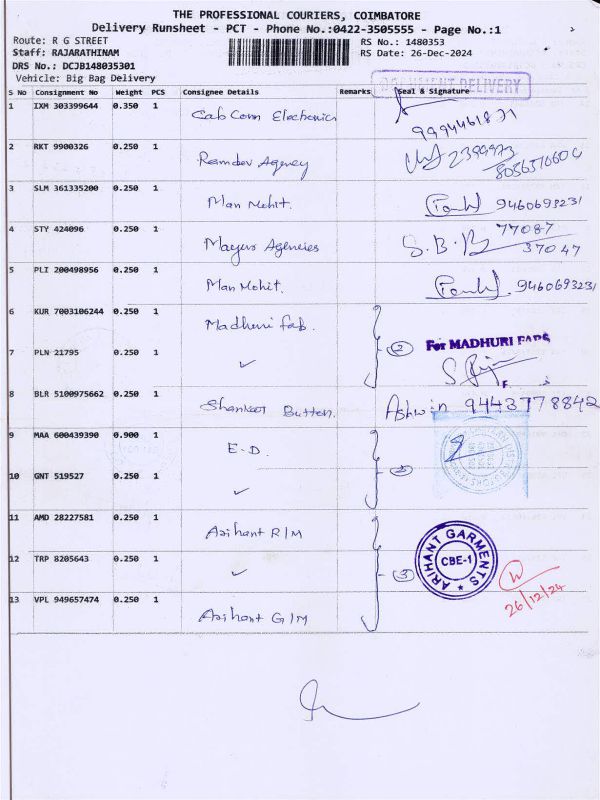 THE PROFESSIONAL COURIERS, COIMBATORE
Delivery Runsheet - PCT - Phone No.:0422-3505555 - Page No.:1
Route: R G STREET RS No.: 1480353
Staff: RAJARATHINAM RS Date: 26-Dec-2024
DRS No.: DCJB148035301
Vehicle: Big Bag Delivery
DOCUMENT DELIVERY
S No Consignment No Weight PCS Consignee Details Remarks Seal & Signature
1 IXM 303399644 0.350 1 Cab Conn Electronics 9994461871
2 RKT 9900326 0.250 1 Ramdev Agency 2399973
8056576604
3 SLM 361335200 0.250 1 Man Mohit. 9460693231
4 STY 424096 0.250 1 Mayur Agencies S.B.R 77087
37047
5 PLI 200498956 0.250 1 Man Mohit. 9460693231
6 KUR 7003106244 0.250 1 Madhuri fab. 2 For MADHURI FABS
7 PLN 21795 0.250 1 ✓
8 BLR 5100975662 0.250 1 Shankar Button. Ashwin 9443778842
9 MAA 600439390 0.900 1 E-D. 2
10 GNT 519527 0.250 1 ✓
11 AMD 28227581 0.250 1 Arihant R/M
12 TRP 8205643 0.250 1 ✓ 3 ARIHANT GARMENTS CBE-1
26/12/24
13 VPL 949657474 0.250 1 Arihant G/M